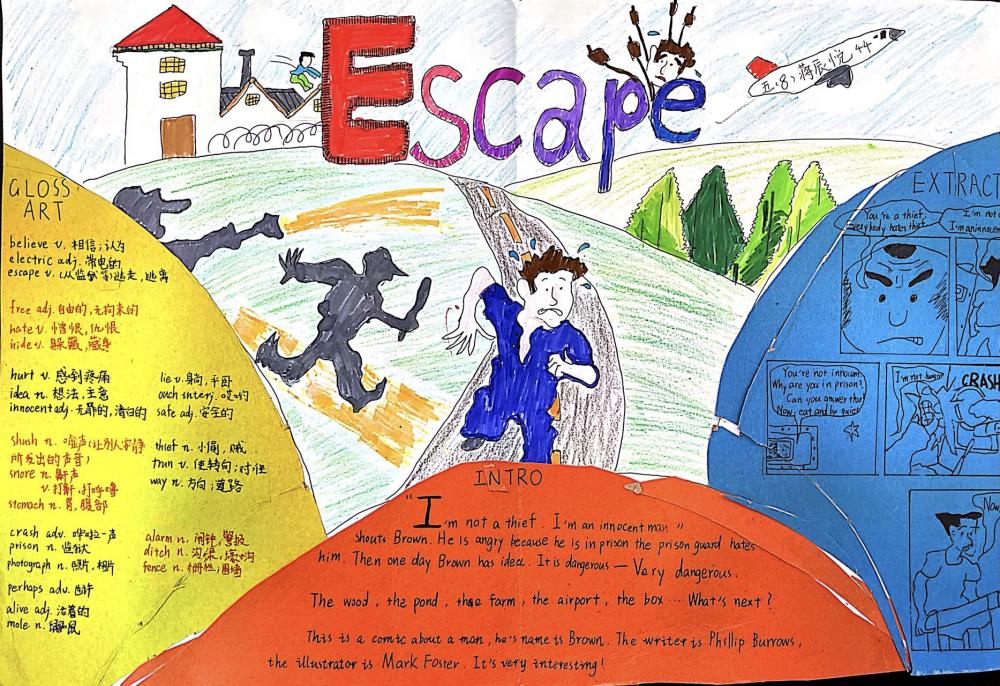 Escape
五(8)蒋辰悦 44
GLOSS
ART
believe v. 相信;认为
electric adj. 带电的
escape v. (从监狱等)逃走,逃离
free adj. 自由的,无拘束的
hate v. 憎恨,仇恨
hide v. 躲藏,藏身
hurt v. 感到疼痛
idea n. 想法,主意
innocent adj. 无罪的,清白的
lie v. 躺,平卧
ouch interj. 哎哟
safe adj. 安全的
shush n. 嘘声(让别人安静
所发出的声音)
snore n. 鼾声
v. 打鼾,打呼噜
stomach n. 胃,腹部
thief n. 小偷,贼
trun v. 使转向;对准
way n. 方向;道路
crash adv. 哗啦一声
prison n. 监狱
photograph n. 照片,相片
perhaps adv. 也许
alive adj. 活着的
mole n. 鼹鼠
alarm n. 闹钟,警报
ditch n. 沟渠,壕沟
fence n. 栅栏;围墙
INTRO
"I'm not a thief. I'm an innocent man"
shouts Brown. He is angry because he is in prison the prison guard hates
him. Then one day Brown has idea. It is dangerous — Very dangerous.
The wood, the pond, thee farm, the airport, the box ···· What's next?
This is a comic about a man, he's name is Brown. The writer is Phillip Burrows,
the illustrator is Mark Foster. It's very interesting!
EXTRACT
You're a thief,
everybody hates thief
I'm not a
I'm an innocent
You're not innocent.
Why are you in prison?
Can you amwer that
Now, eat and be quiet
I'm not hungry
CRASH
Now,